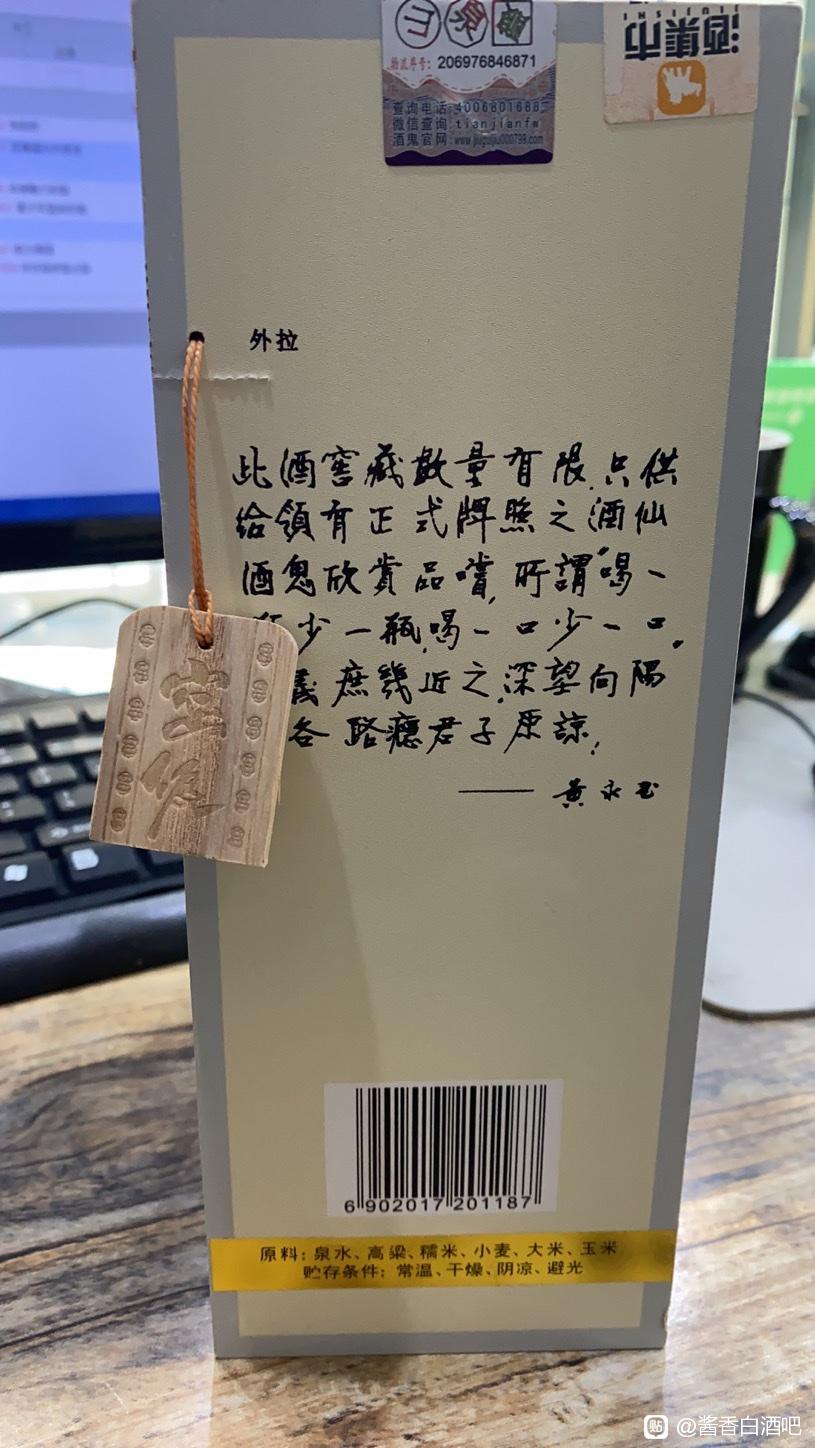 物流序号: 206976846871
查询电话:4006801688
微信查询:tianjianfw
酒鬼官网:www.jiuguijiu000799.com
酒集市
JIUJISHI
外拉
此酒窖藏數量有限,只供
给領有正式牌照之酒仙
酒鬼欣賞品嚐,所謂“喝一
少一瓶,喝一口少一口。
義庶幾近之,深望向隅
各路癮君子原諒!
——黄永玉
6 902017 201187
原料: 泉水、高粱、糯米、小麦、大米、玉米
贮存条件: 常温、干燥、阴凉、避光
贴 @酱香白酒吧